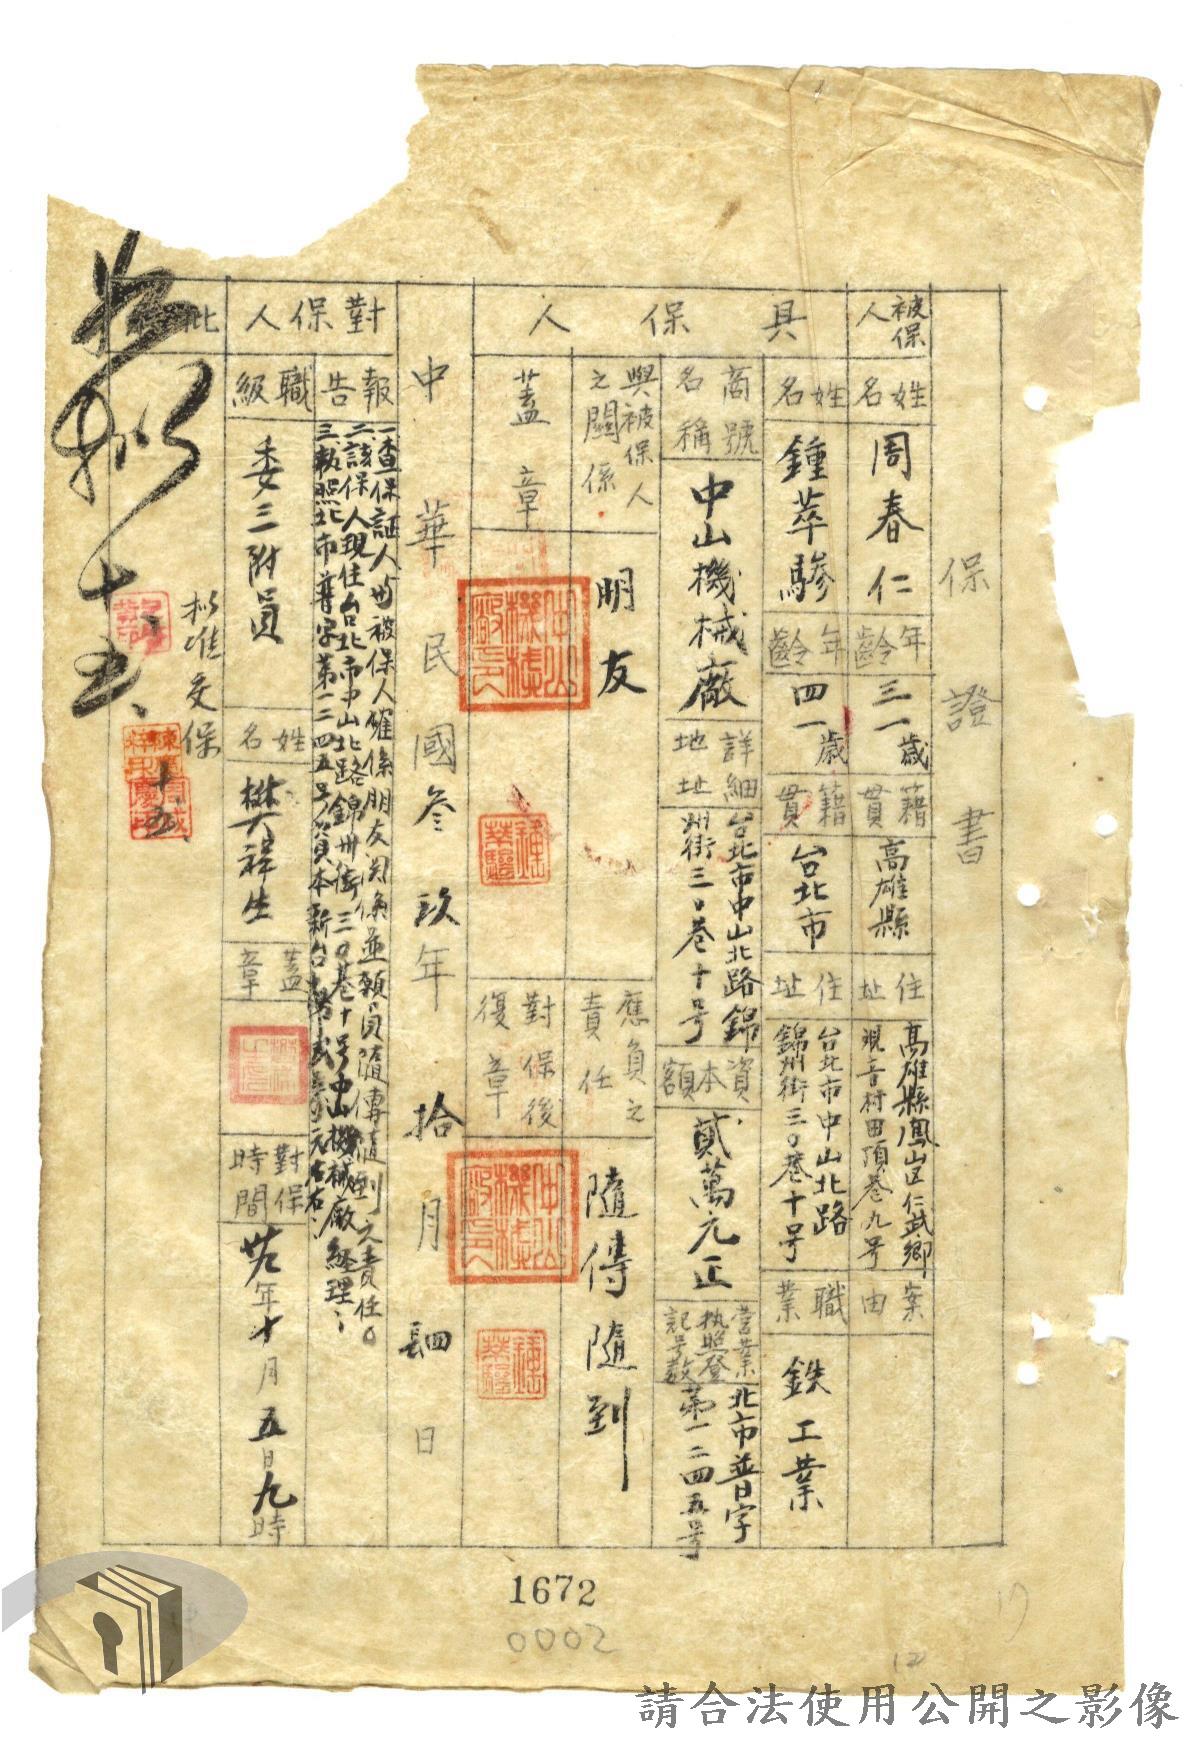 保證書
被保人
姓名
周春仁
年齡
三一歲
籍貫
高雄縣
住址
高雄縣鳳山区仁武鄉
觀音村田頂巷九号
案由
具保人
姓名
鍾萃驂
年齡
四一歲
籍貫
台北市
住址
台北市中山北路
錦州街三〇巷十号
職業
鉄工業
商號
名稱
中山機械廠
詳細
地址
台北市中山北路錦
州街三〇巷十号
資本額
貳萬元正
營業
执照登
記号数
北市普日字
第一二四五号
與被保人
之關係
朋友
應負之
責任
隨傳隨到
蓋章
對保後
復章
中華民國叁玖年拾月四日
對保人
報告
一、查保証人與被保人確係朋友関係並願負隨傳隨到之責任。
二、該保人現住台北市中山北路錦州街三〇巷十号中山機械廠經理、
三、執照北市普字第一二四五号資本新台幣貳萬元左右、
職級
委三附員
姓名
樊祥生
蓋章
對保
時間
卅九年十月五日九時
批
拟准交保
十、五、
十、五、
1672
0002
請合法使用公開之影像